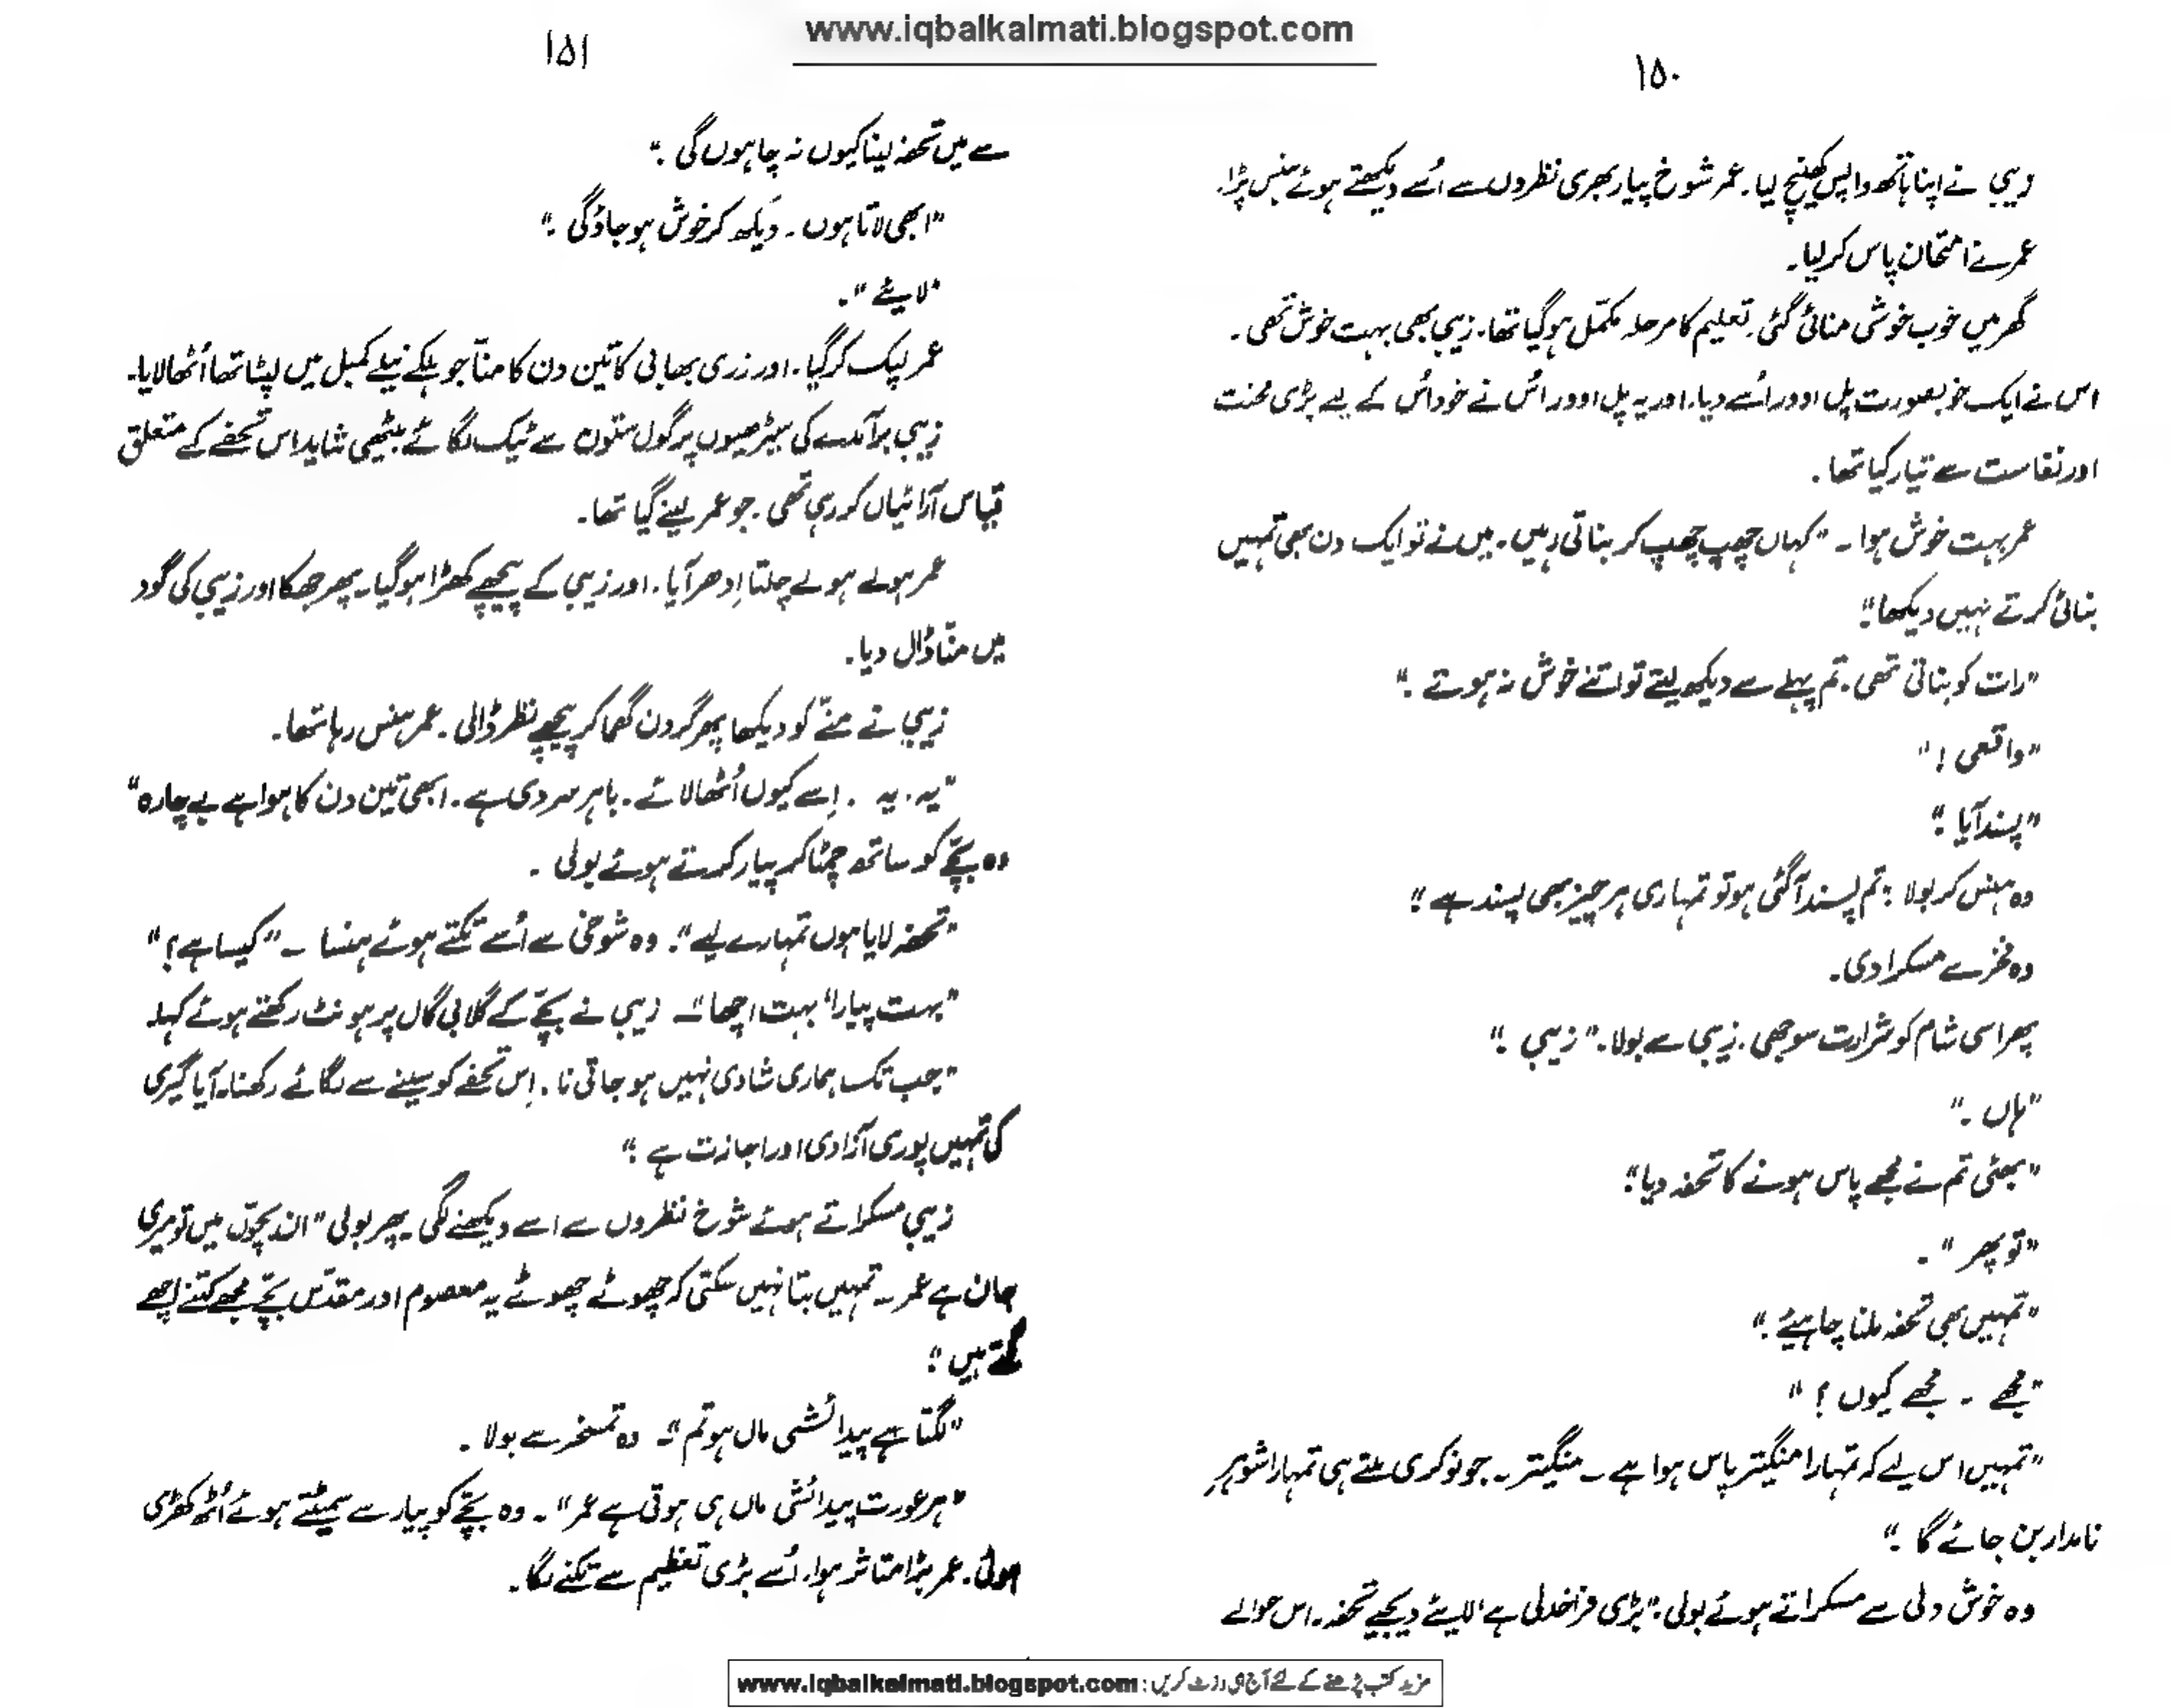 www.iqbalkalmati.blogspot.com
۱۵۰
زیبی نے اپنا ہاتھ واپس کھینچ لیا۔ عمر شوخ پیار بھری نظروں سے اُسے دیکھتے ہوئے ہنس پڑا۔
عمر نے امتحان پاس کر لیا۔
گھر میں خوب خوشی منائی گئی۔ تعلیم کا مرحلہ مکمّل ہو گیا تھا۔ زیبی بھی بہت خوش تھی۔
اس نے ایک خوبصورت پل اوور اُسے دیا۔ اور یہ پل اوور اُس نے خود اُس کے لیے بڑی محنت
اور نفاست سے تیار کیا تھا۔
عمر بہت خوش ہوا۔ "کہاں چھپ چھپ کر بناتی رہیں۔ میں نے تو ایک دن بھی تمہیں
بنائی کرتے نہیں دیکھا۔"
"رات کو بناتی تھی۔ تم پہلے سے دیکھ لیتے تو اتنے خوش نہ ہوتے۔"
"واقعی!"
"پسند آیا۔"
وہ ہنس کر بولا: "تم پسند آگئی ہو تو تمہاری ہر چیز بھی پسند ہے۔"
وہ فخر سے مسکرا دی۔
پھر اسی شام کو شرارت سوجھی۔ زیبی سے بولا۔ "زیبی۔"
"ہاں۔"
"بھئی تم نے مجھے پاس ہونے کا تحفہ دیا۔"
"تو پھر"۔
"تمہیں بھی تحفہ ملنا چاہیئے۔"
"مجھے ۔ مجھے کیوں؟"
"تمہیں اس لیے کہ تمہارا منگیتر پاس ہوا ہے ۔ منگیتر ۔ جو نوکری ملتے ہی تمہارا شوہرِ
نامدار بن جائے گا۔"
وہ خوش دلی سے مسکراتے ہوئے بولی۔ "بڑی فراخدلی ہے، لایئے دیجیے تحفہ۔ اس حوالے
۱۵۱
سے میں تحفہ لینا کیوں نہ چاہوں گی۔"
"ابھی لاتا ہوں۔ دیکھ کر خوش ہو جاؤ گی۔"
"لایئے"۔
عمر لپک کر گیا۔ اور زری بھابی کا تین دن کا منّا جو ہلکے نیلے کمبل میں لپٹا تھا اُٹھا لایا۔
زیبی برآمدے کی سیڑھیوں پر گول ستون سے ٹیک لگائے بیٹھی شاید اس تحفے کے متعلق
قیاس آرائیاں کر رہی تھی۔ جو عمر لینے گیا تھا۔
عمر ہولے ہولے چلتا اِدھر آیا۔ اور زیبی کے پیچھے کھڑا ہو گیا۔ پھر جھکا اور زیبی کی گود
میں منّا ڈال دیا۔
زیبی نے منّے کو دیکھا پھر گردن گھما کر پیچھے نظر ڈالی۔ عمر ہنس رہا تھا۔
"یہ۔ یہ ۔ اِسے کیوں اُٹھا لائے۔ باہر سردی ہے۔ ابھی تین دن کا ہوا ہے بے چارہ"
وہ بچّے کو ساتھ چمٹا کر پیار کرتے ہوئے بولی۔
"تحفہ لایا ہوں تمہارے لیے"۔ وہ شوخی سے اُسے تکتے ہوئے ہنسا ۔ "کیسا ہے؟"
"بہت پیارا، بہت اچھا"۔ زیبی نے بچّے کے گلابی گال پر ہونٹ رکھتے ہوئے کہا۔
"جب تک ہماری شادی نہیں ہو جاتی نا۔ اِس تحفے کو سینے سے لگائے رکھنا۔ آیا گیری
کی تمہیں پوری آزادی اور اجازت ہے۔"
زیبی مسکراتے ہوئے شوخ نظروں سے اسے دیکھنے لگی۔ پھر بولی "ان بچوّں میں تو میری
جان ہے عمر۔ تمہیں بتا نہیں سکتی کہ چھوٹے چھوٹے یہ معصوم اور مقدّس بچّے مجھے کتنے اچھے
لگتے ہیں۔"
"لگتا ہے پیدائشی ماں ہو تم"۔ وہ تمسخر سے بولا۔
"ہر عورت پیدائشی ماں ہی ہوتی ہے عمر"۔ وہ بچّے کو پیار سے سمیٹتے ہوئے اُٹھ کھڑی
ہوئی۔ عمر بڑا متاثر ہوا۔ اُسے بڑی تعظیم سے تکنے لگا۔
مزید کتب پڑھنے کے لئے آج ہی وزٹ کریں : www.iqbalkalmati.blogspot.com